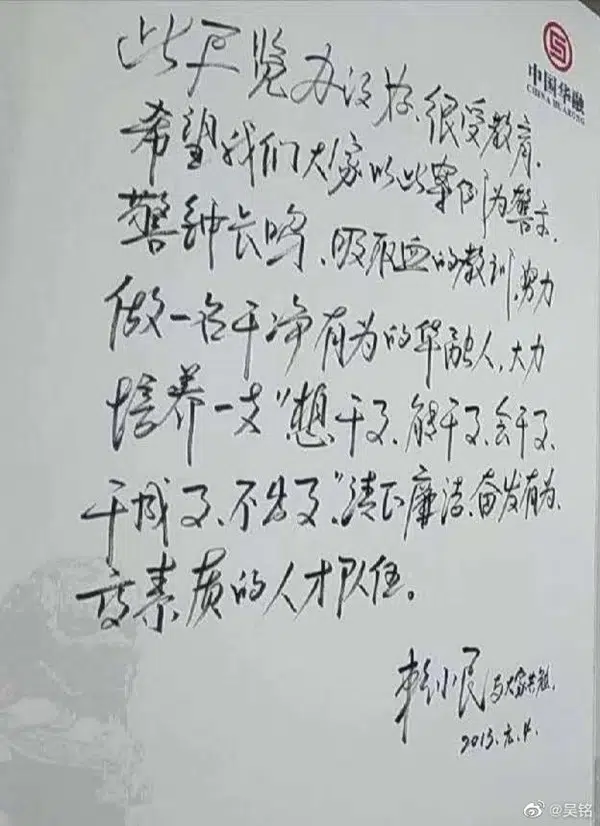 中国华融
CHINA HUARONG
此展览办设好、很受教育、
希望我们大家以此案例为警示、
警钟长鸣、吸取血的教训、努力
做一名干净有为的华融人,大力
培养一支“想干事、能干事、会干事、
干成事、不出事”清正廉洁、奋发有为、
高素质的人才队伍。
赖小民与大家共勉.
2015.
@吴铭